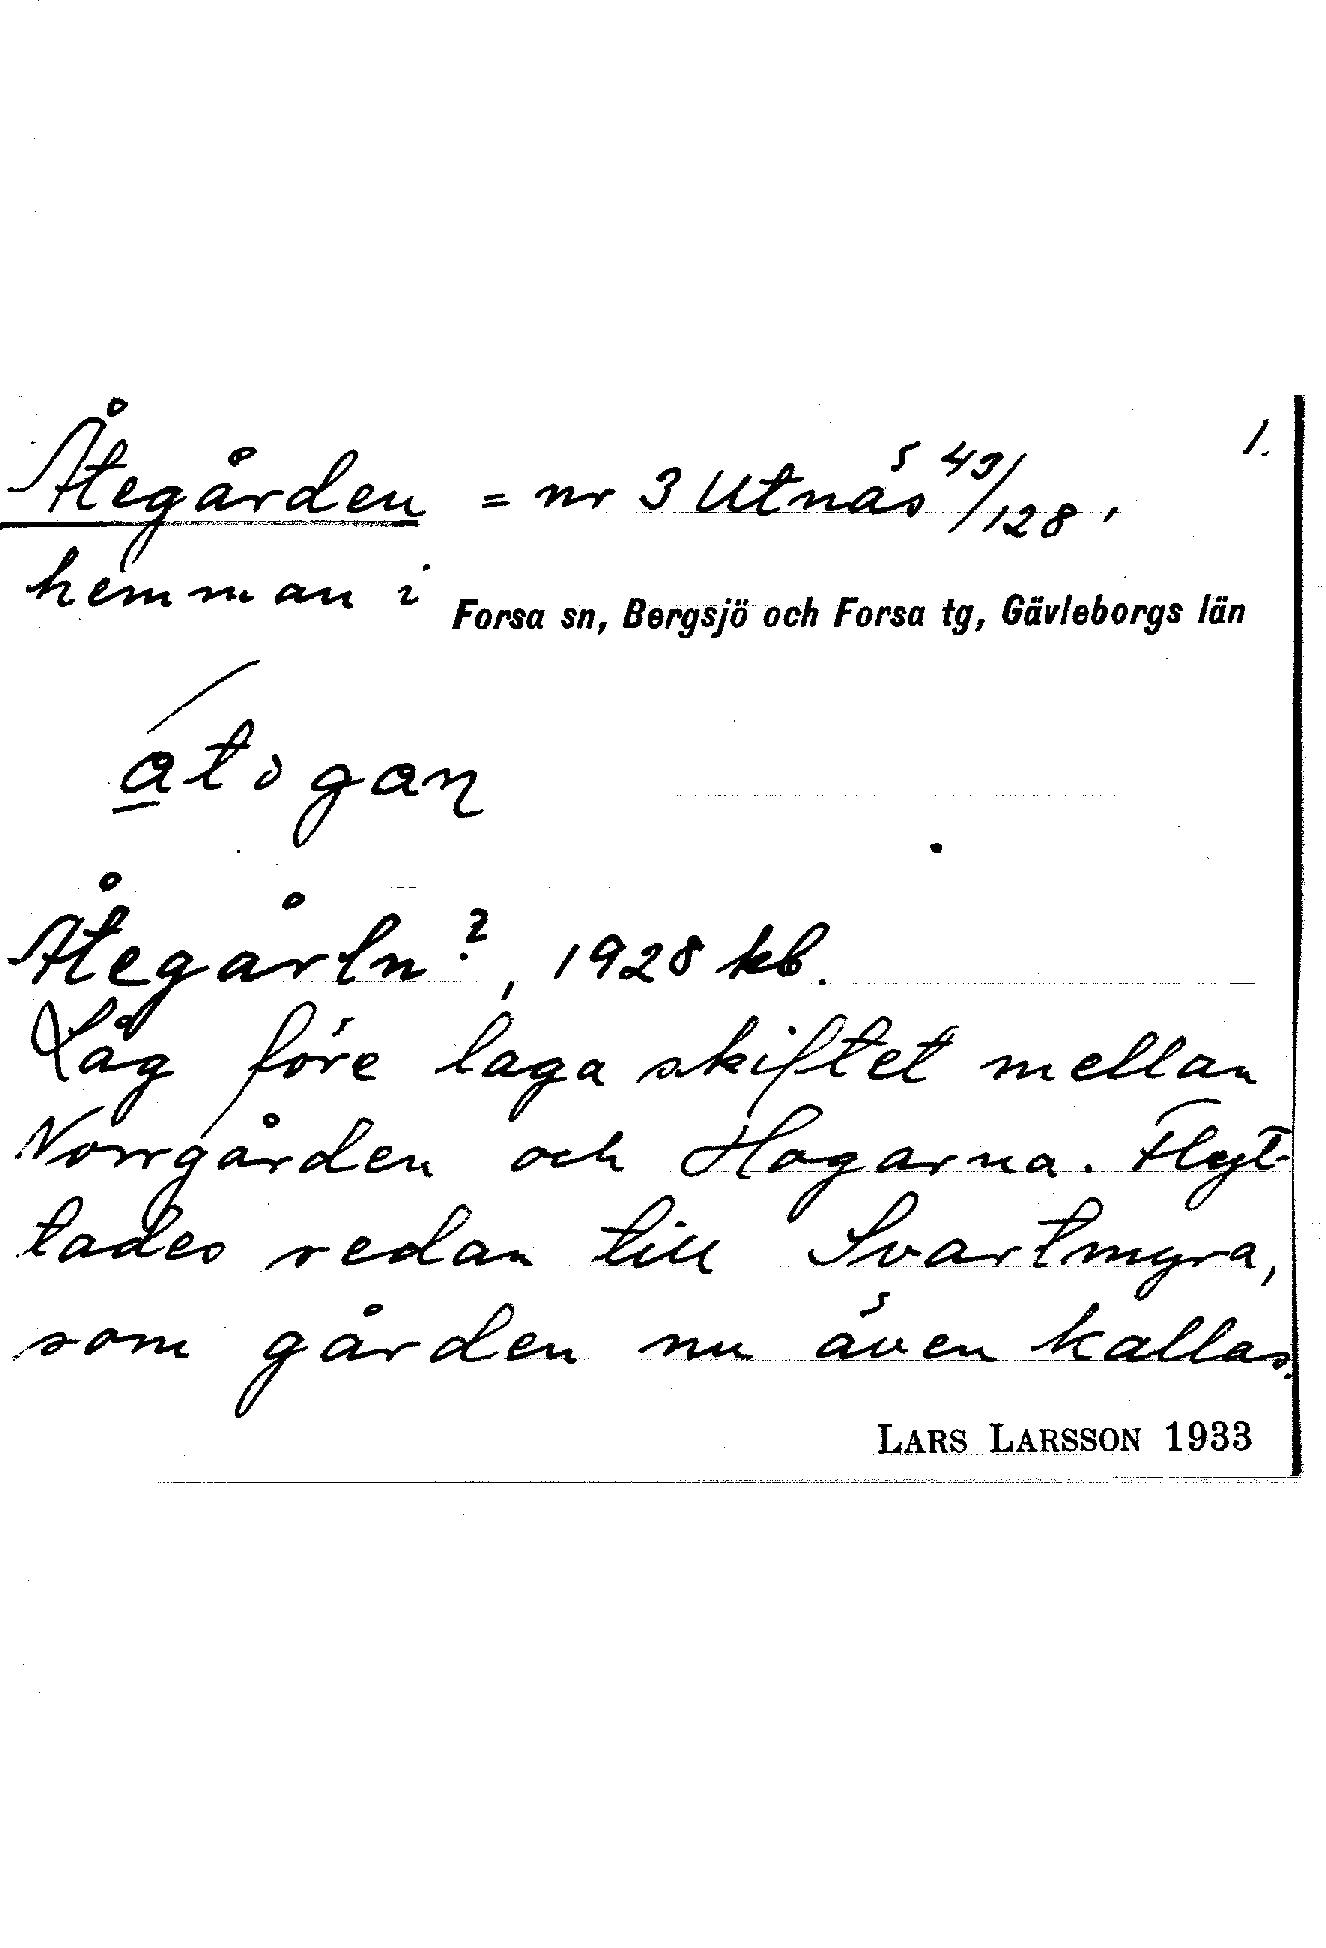 1.
Åtegården = nr 3 Utnäs 43/128,
hemman i Forsa sn, Bergsjö och Forsa tg, Gävleborgs län
Åtegårln?, 1928 kb.
Låg före laga skiftet mellan
Norrgården och Hagarna. Flyt-
tades redan till Svartmyra,
som gården nu även kallas.
LARS LARSSON 1933